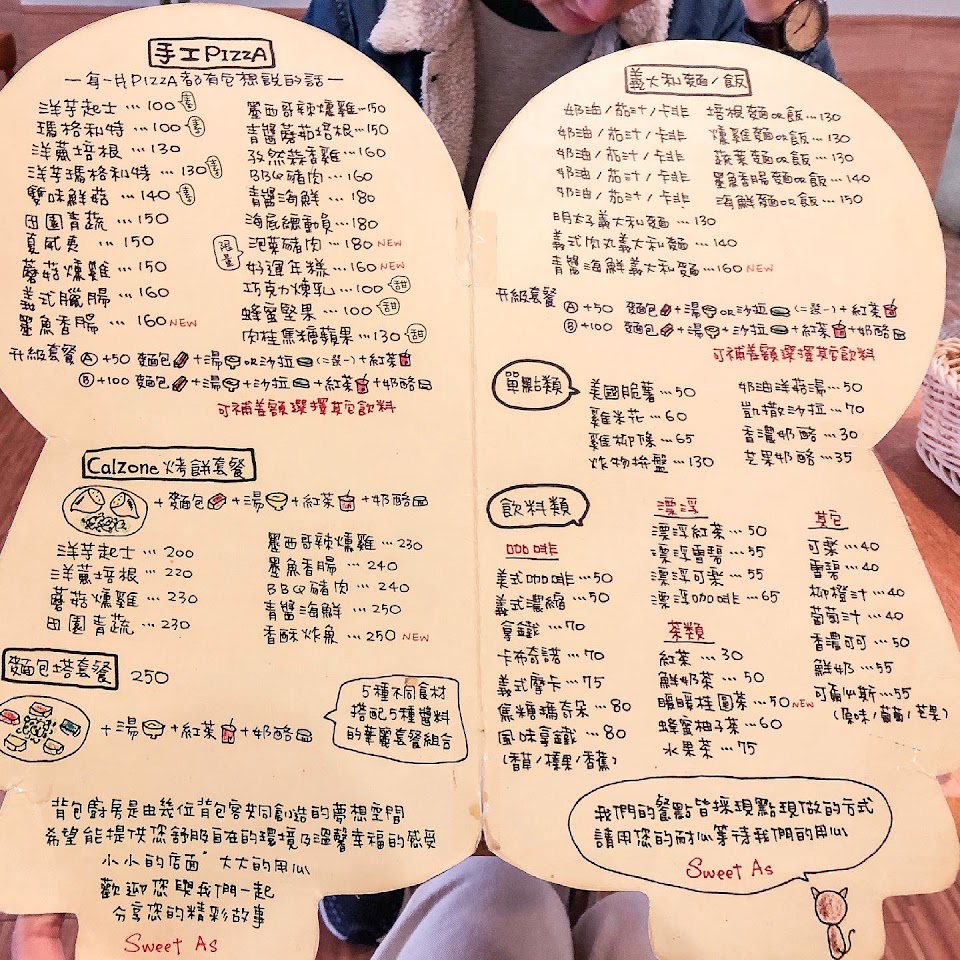 手工PIZZA
一每一片PIZZA都有它想說的話一
洋芋起士…100 素
瑪格利特…100 素
洋蔥培根…130
洋芋瑪格利特…130 素
雙味鮮菇…140 素
田園青蔬…150
夏威夷…150
蘑菇燻雞…150
義式臘腸…160
墨魚香腸…160 NEW
墨西哥辣燻雞…150
青醬蘑菇培根…150
孜然蒜香雞…160
BBQ豬肉…160
青醬海鮮…180
海底總動員…180
限量 泡菜豬肉…180 NEW
好運年糕…160 NEW
巧克力煉乳…100 甜
蜂蜜堅果…100 甜
肉桂焦糖蘋果…130 甜
升級套餐 Ⓐ+50 麵包+湯or沙拉(二選一)+紅茶
Ⓑ+100 麵包+湯+沙拉+紅茶+奶酪
可補差額選擇其它飲料
Calzone 烤餅套餐
+麵包+湯+紅茶+奶酪
洋芋起士…200
洋蔥培根…220
蘑菇燻雞…230
田園青蔬…230
墨西哥辣燻雞…230
墨魚香腸…240
BBQ豬肉…240
青醬海鮮…250
香酥炸魚…250 NEW
麵包塔套餐 250
+湯+紅茶+奶酪
5種不同食材
搭配5種醬料
的華麗套餐組合
背包廚房是由幾位背包客共同創造的夢想空間
希望能提供您舒服自在的環境及溫馨幸福的感受
小小的店面,大大的用心
歡迎您與我們一起
分享您的精彩故事
Sweet As
義大利麵/飯
奶油/茄汁/卡非 培根麵or飯…130
奶油/茄汁/卡非 燻雞麵or飯…130
奶油/茄汁/卡非 蔬菜麵or飯…130
奶油/茄汁/卡非 墨魚香腸麵or飯…140
奶油/茄汁/卡非 海鮮麵or飯…150
明太子義大利麵…130
義式肉丸義大利麵…140
青醬海鮮義大利麵…160 NEW
升級套餐 Ⓐ+50 麵包+湯or沙拉(二選一)+紅茶
Ⓑ+100 麵包+湯+沙拉+紅茶+奶酪
可補差額選擇其它飲料
單點類
美國脆薯…50
雞米花…60
雞柳條…65
炸物拼盤…130
奶油洋菇湯…50
凱撒沙拉…70
香濃奶酪…30
芒果奶酪…35
飲料類
咖啡
美式咖啡…50
義式濃縮…50
拿鐵…70
卡布奇諾…70
義式摩卡…75
焦糖瑪奇朵…80
風味拿鐵…80
(香草/榛果/香蕉)
漂浮
漂浮紅茶…50
漂浮雪碧…55
漂浮可樂…55
漂浮咖啡…65
茶類
紅茶…30
鮮奶茶…50
暖暖桂圓茶…50 NEW
蜂蜜柚子茶…60
水果茶…75
其它
可樂…40
雪碧…40
柳橙汁…40
葡萄汁…40
香濃可可…50
鮮奶…55
可爾必斯…55
(原味/葡萄/芒果)
我們的餐點皆採現點現做的方式
請用您的耐心等待我們的用心
Sweet As